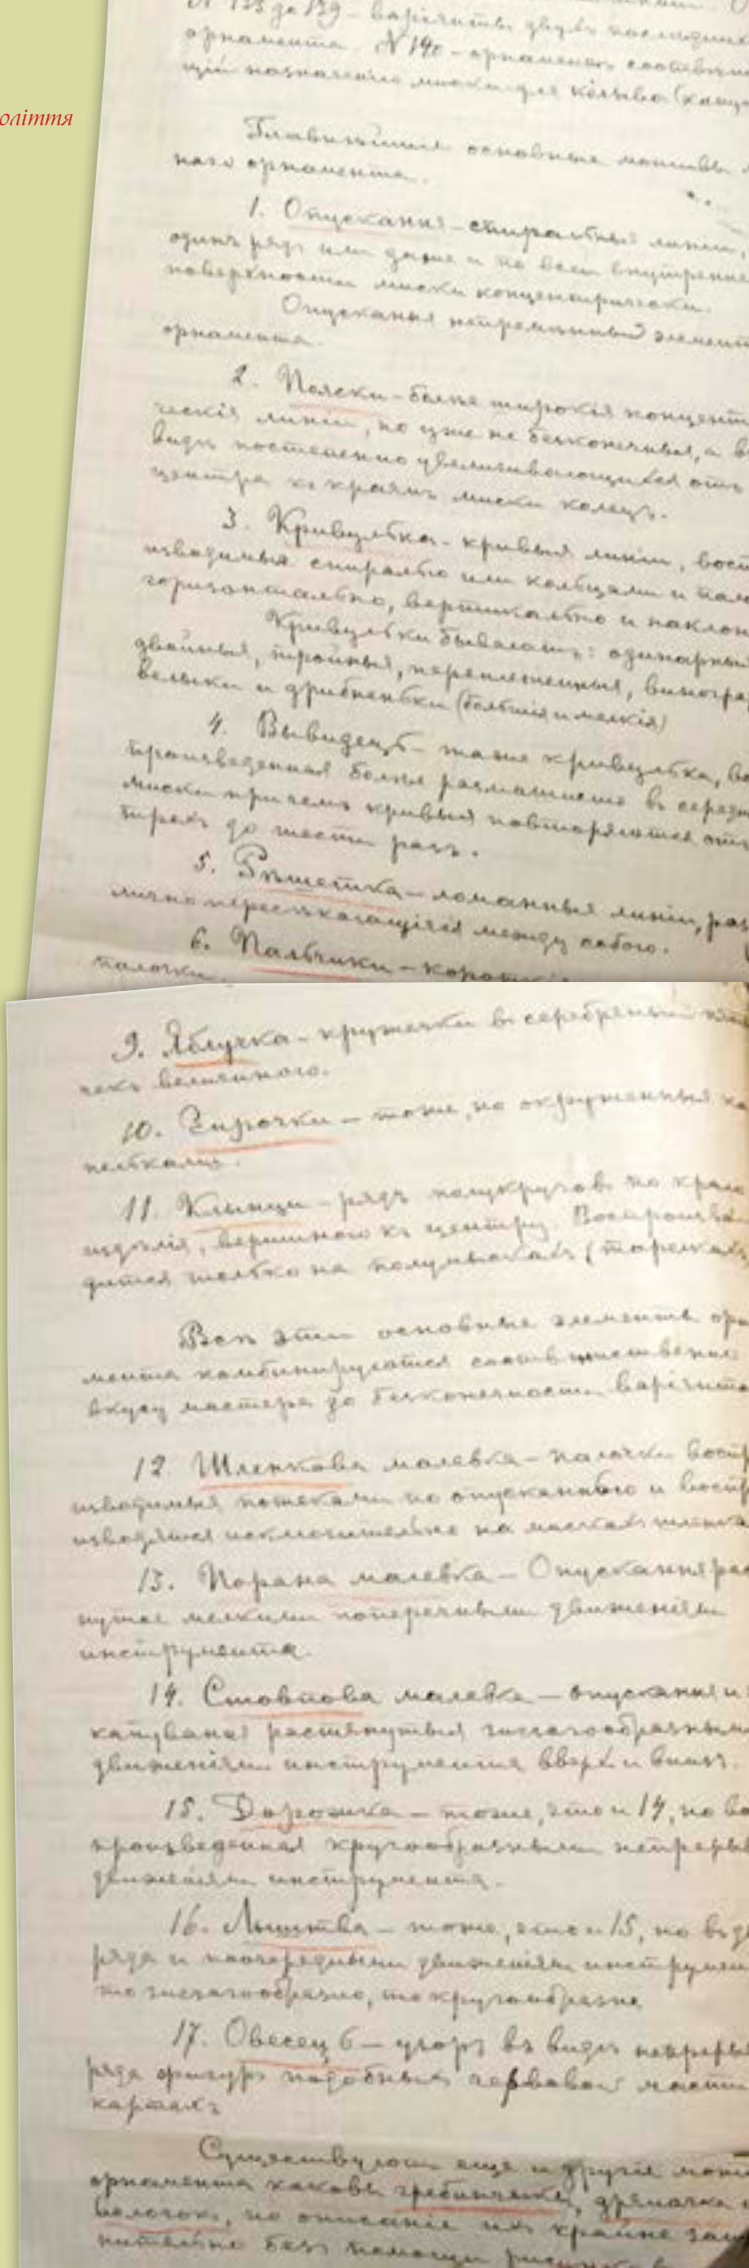 оліття
№ 133 до 139 – варіанты двухъ последних
орнамента. № 140 – орнаментъ соответству
щій назначенію миски для колыва (канун
Главнѣйшие основные мотивы
наго орнамента.
1. Опускання – спиральныя линіи,
одинъ рядъ или даже и по всей внутренне
поверхности миски концентрически.
Опускання непременный элемент
орнамента.
2. Пояски – болѣе широкія концентр
ческія линіи, но уже не безконечныя, а въ
видѣ постепенно увеличивающихся отъ
центра къ краямъ миски колецъ.
3. Кривулька – кривыя линіи, воспр
изводимыя спиралью или кольцами и
горизонтально, вертикально и наклон
Кривульки бываютъ: одинарныя
двойныя, тройныя, переплетенныя, виногра
велыки и дрибненьки (большія и мелкія)
4. Вывидець – таже кривулька, во
произведенная болѣе размашисто въ середи
миски причемъ кривыя повторяются отъ
тирехъ до шести разъ.
5. Рѣшетка – ломанныя линіи, раз
лично пересѣкающіеся между собою.
6. Пальчики – коротк
палочки.
9. Яблучка – кружечки въ серебреный
чекъ величиною.
10. Зирочки – тоже, но окруженныя ка
пельками.
11. Клынци – рядъ полукруговъ по краю
издѣлія, вершиною къ центру. Воспроизво
дится только на полумыскахъ (тарелкахъ
Все эти основные элементы орна
мента комбинируются соответственно
вкусу мастера до безконечности варіанто
12. Шленкова малевка – палочки воспр
изводимыя потеками по опусканнью и воспр
изводятся исключительно на мискахъ
13. Порана малевка – Опускання рас
нутое мелкими поперечными движеніями
инструмента.
14. Стовпова малевка – опускання и
капування растянутыя зигзагообразными
движеніями инструмента вверхъ и внизъ.
15. Дорожка – тоже, что и 14, но во
произведенная кругообразными непрерыв
движеніями инструмента.
16. Лыштва – тоже, что и 15, но въ
ряда и поочередными движеніями инструмен
то зигзагообразно, то кругообразно
17. Овесець – узоръ въ видѣ непреры
ряда фигуръ подобныхъ червовой масти
картахъ
Существуютъ еще и другіе моти
орнамента каковы гребинчики, дряпачка
волочокъ, но описаніе ихъ крайне зат
нительно безъ помощи рисунка